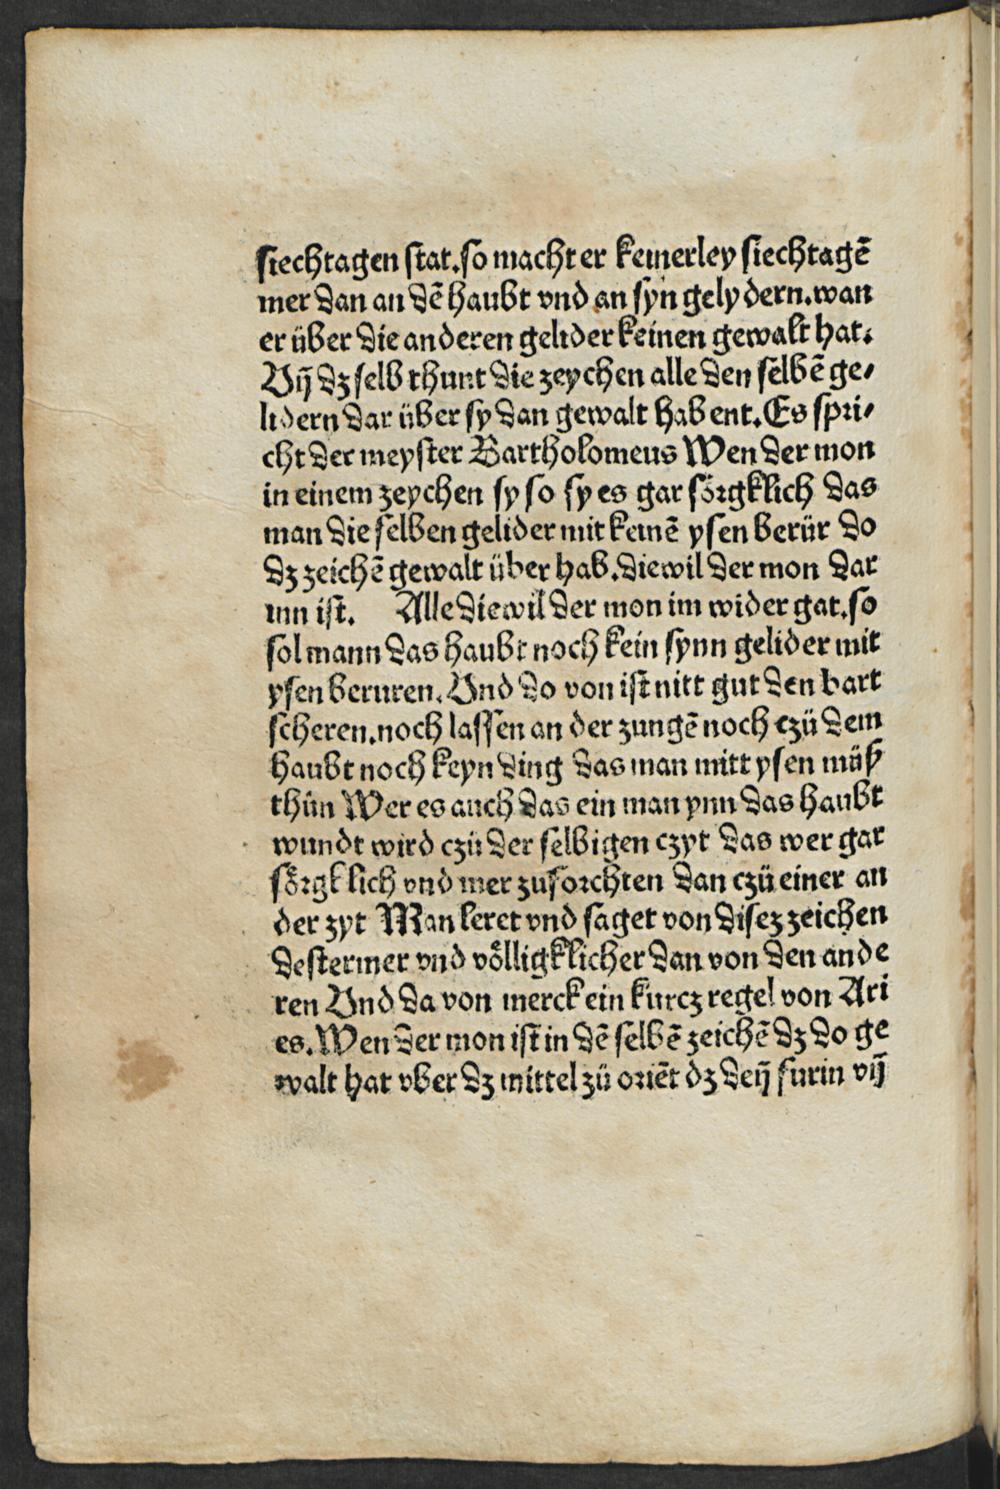 siechtagen stat.so macht er keinerley siechtagē
mer dan an dē haubt vnd an syn gelydern.wan
er über die anderen gelider keinen gewalt hat.
Vn̄ dz selb thunt die zeychen alle den selbē ge⸗
lidern dar über sy dan gewalt habent.Es spri⸗
cht der meyster Bartholomeus Wen der mon
in einem zeychen sy so sy es gar sörgklich das
man die selben gelider mit keinē ysen berür do
dz zeichē gewalt über hab.diewil der mon dar
inn ist. Alle diewil der mon im wider gat.so
sol mann das haubt noch kein synn gelider mit
ysen beruren.Vnd do von ist nitt gut den bart
scheren.noch lassen an der zungē noch czü dem
haubt noch keyn ding das man mitt ysen müß
thün Wer es auch das ein man ynn das haubt
wundt wird czü der selbigen czyt das wer gar
sörgklich vnd mer zuforchten dan czü einer an
der zyt Man leret vnd saget von disez zeichen
destermer vnd völligklicher dan von den ande
ren Vnd da von merck ein kurcz regel von Ari
es.Wen der mon ist in dē selbē zeichē dz do ge
walt hat vber dz mittel zü oriēt dz den̄ furin vn̄